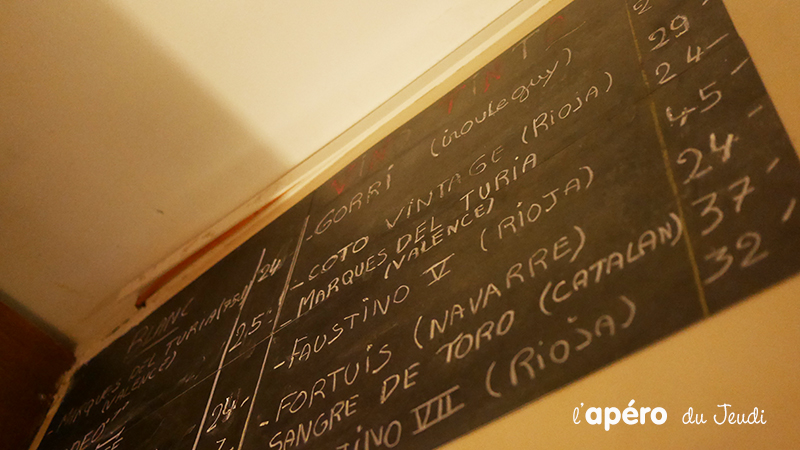 BLANC
MARQUES DEL TURIA
(VALENCE)
24
25
24
- GORRI (irouleguy)
- COTO VINTAGE (RIOJA)
- MARQUES DEL TURIA
(VALENCE)
- FAUSTINO V (RIOJA)
- FORTUIS (NAVARRE)
SANGRE DE TORO (CATALAN)
VII (RIOJA)
29
24-
45-
24
37-
32-
l'apéro du Jeudi